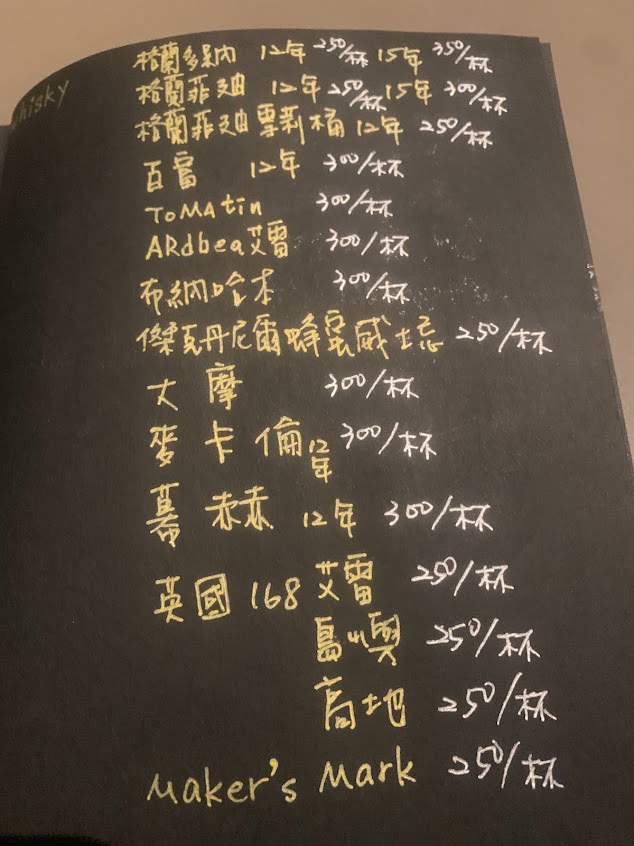 whisky
格蘭多納 12年 250/杯 15年 350/杯
格蘭菲迪 12年 250/杯 15年 300/杯
格蘭菲迪雪莉桶 12年 250/杯
百富 12年 300/杯
ToMAtin 300/杯
ARdbea艾雷 300/杯
布納哈本 300/杯
傑克丹尼爾蜂蜜威士忌 250/杯
大摩 300/杯
麥卡倫12年 300/杯
慕赫 12年 300/杯
英國168 艾雷 250/杯
島嶼 250/杯
高地 250/杯
Maker's Mark 250/杯